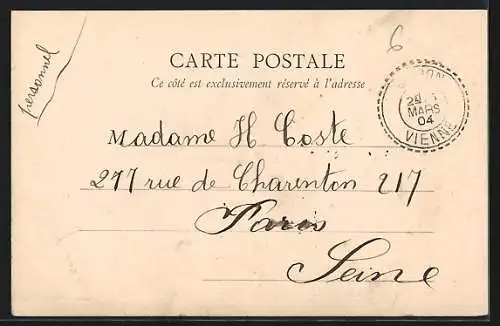 personnel
6
CARTE POSTALE
Ce côté est exclusivement réservé à l'adresse
MARS
04
VIENNE
Madame H Coste
277 rue de Charenton 217
Paris
Seine